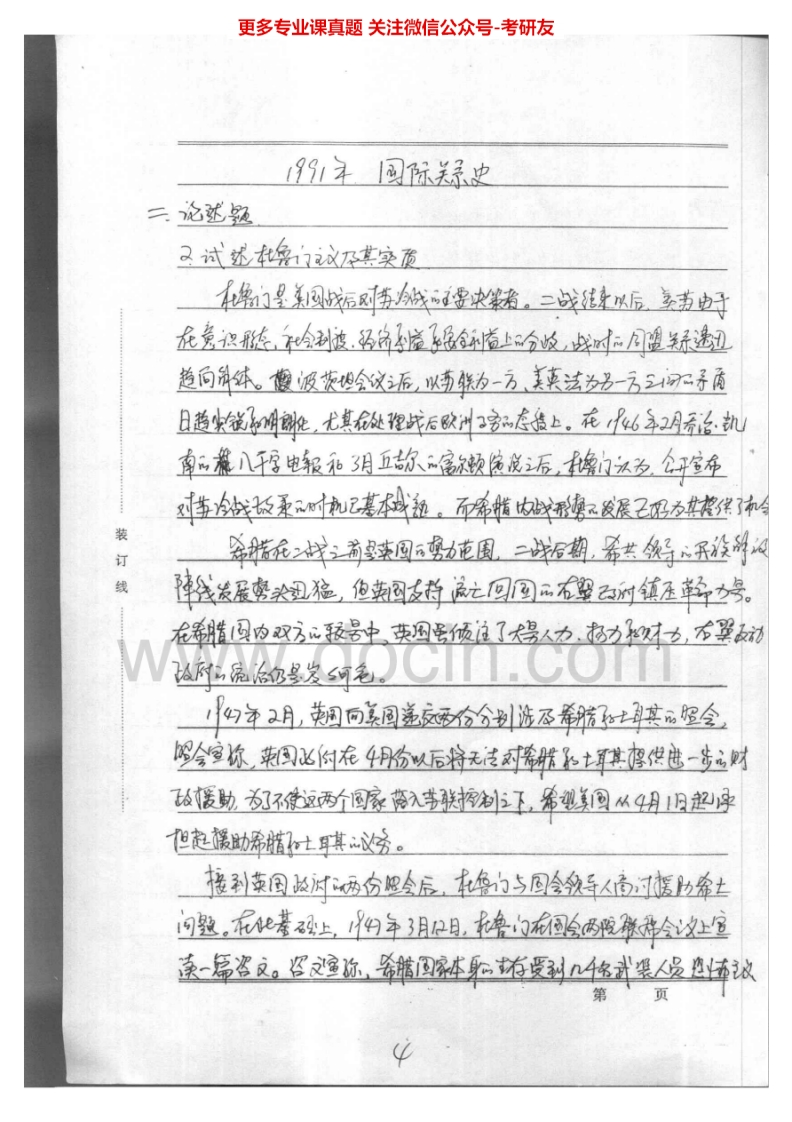 更多专业课真题 关注微信公众号-考研友
1991年 国际关系史
二、论述题
2、试述杜鲁门主义及其实质
杜鲁门是美国战后对苏冷战的主要决策者。二战结束以后，美苏由于
在意识形态、社会制度、经济利益和安全利益上的分歧，战时的同盟关系逐迅
趋向解体。波茨坦会议之后，以苏联为一方，美英法为另一方之间的矛盾
日趋尖锐和明朗化，尤其在处理战后欧洲事务的态度上。在1946年2月乔治·凯
南的八千字电报和3月丘吉尔的富尔顿演说之后，杜鲁门认为，公开宣布
对苏冷战政策的时机已基本成熟。而希腊内战形势的发展已经为其提供了机会
希腊在二战之前是英国的势力范围，二战后期，希共领导的民族解放
阵线发展势头迅猛，但英国支持流亡回国的右翼政府镇压革命力量。
在希腊国内双方的较量中，英国虽倾注了大量人力、物力和财力，右翼反动
政府的统治仍是岌岌可危。
1947年2月，英国向美国递交两份分别涉及希腊和土耳其的照会，
照会宣称，英国政府在4月份以后将无法对希腊和土耳其提供进一步的财
政援助，为了不使这两个国家落入苏联控制之下，希望美国从4月1日起承
担起援助希腊和土耳其的义务。
接到英国政府的两份照会后，杜鲁门与国会领导人商讨援助希土
问题。在此基础上，1947年3月12日，杜鲁门在国会两院联席会议上宣
读一篇咨文。咨文宣称，希腊国家本身的生存受到几千名武装人员恐怖主义
装
订
线
www.docin.com
第 页
4